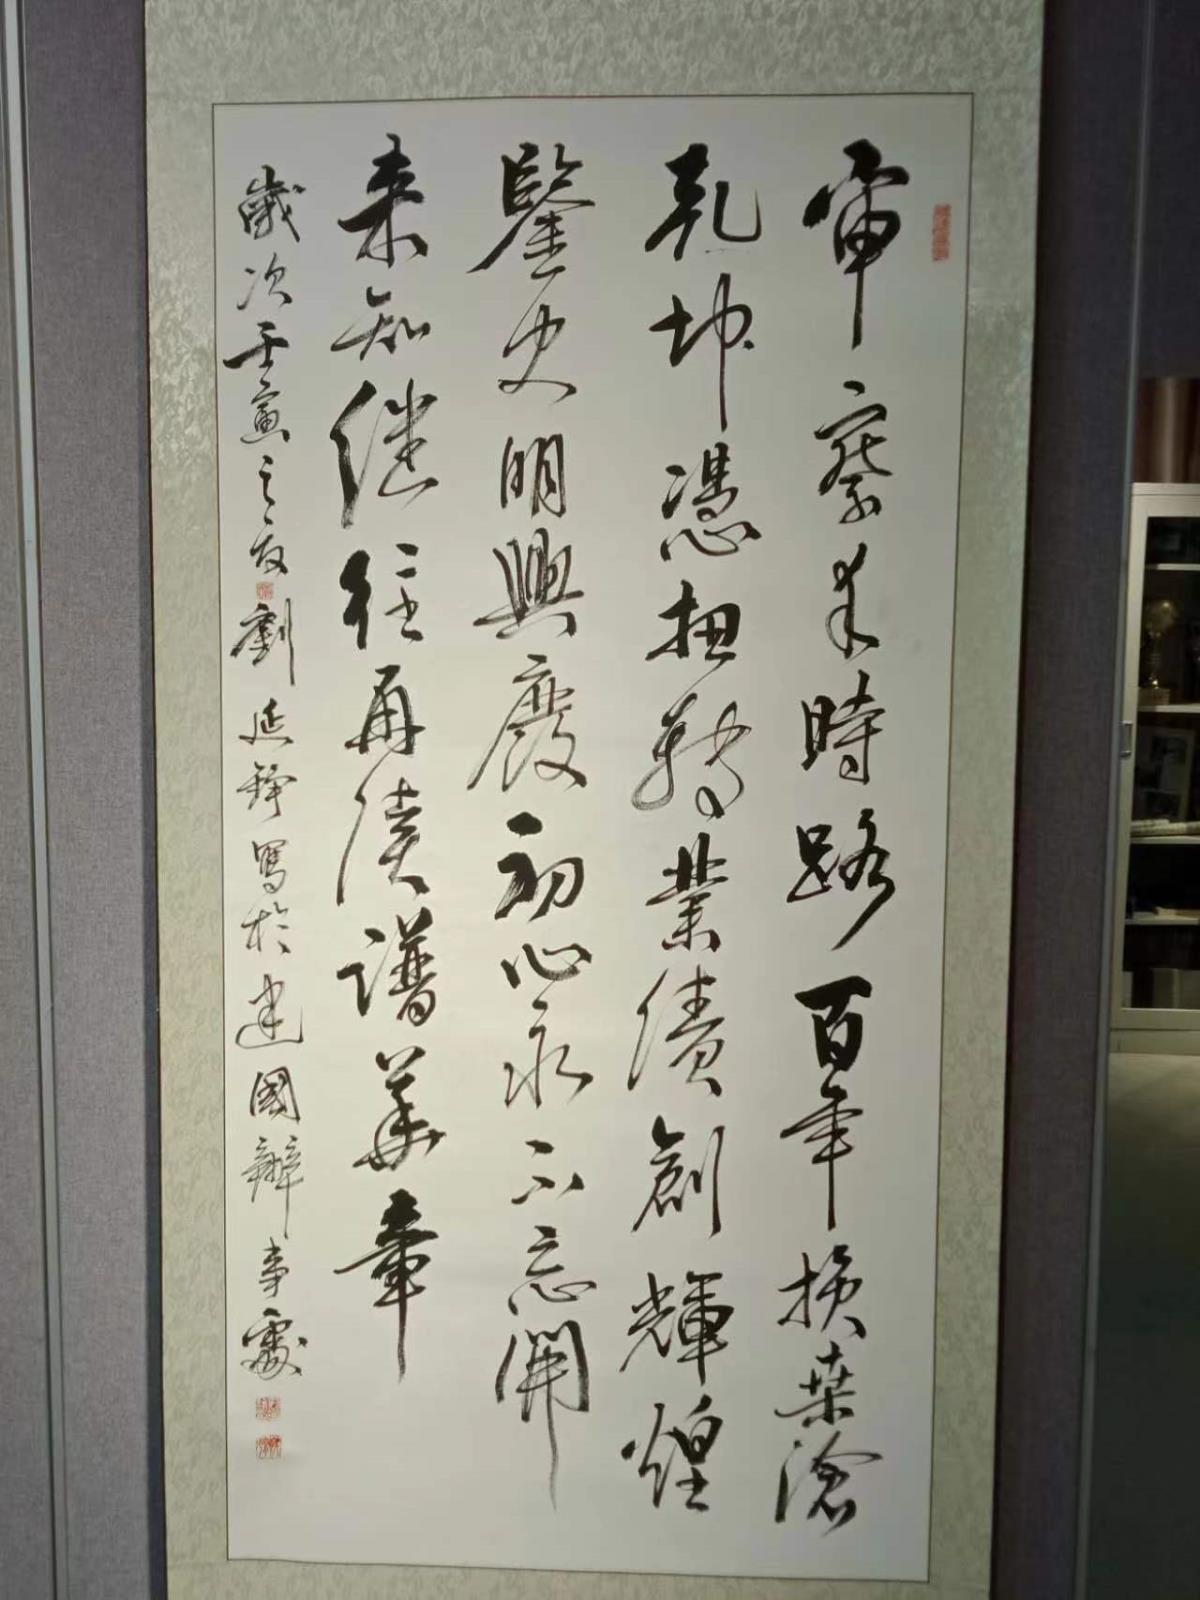 审察来時路百年換桑滄
乾坤憑扭轉業績創輝煌
鑒史明興廢初心永不忘開
来知继往再续譜華章
歲次壬寅之夏劉延錚寫於建國辦事處